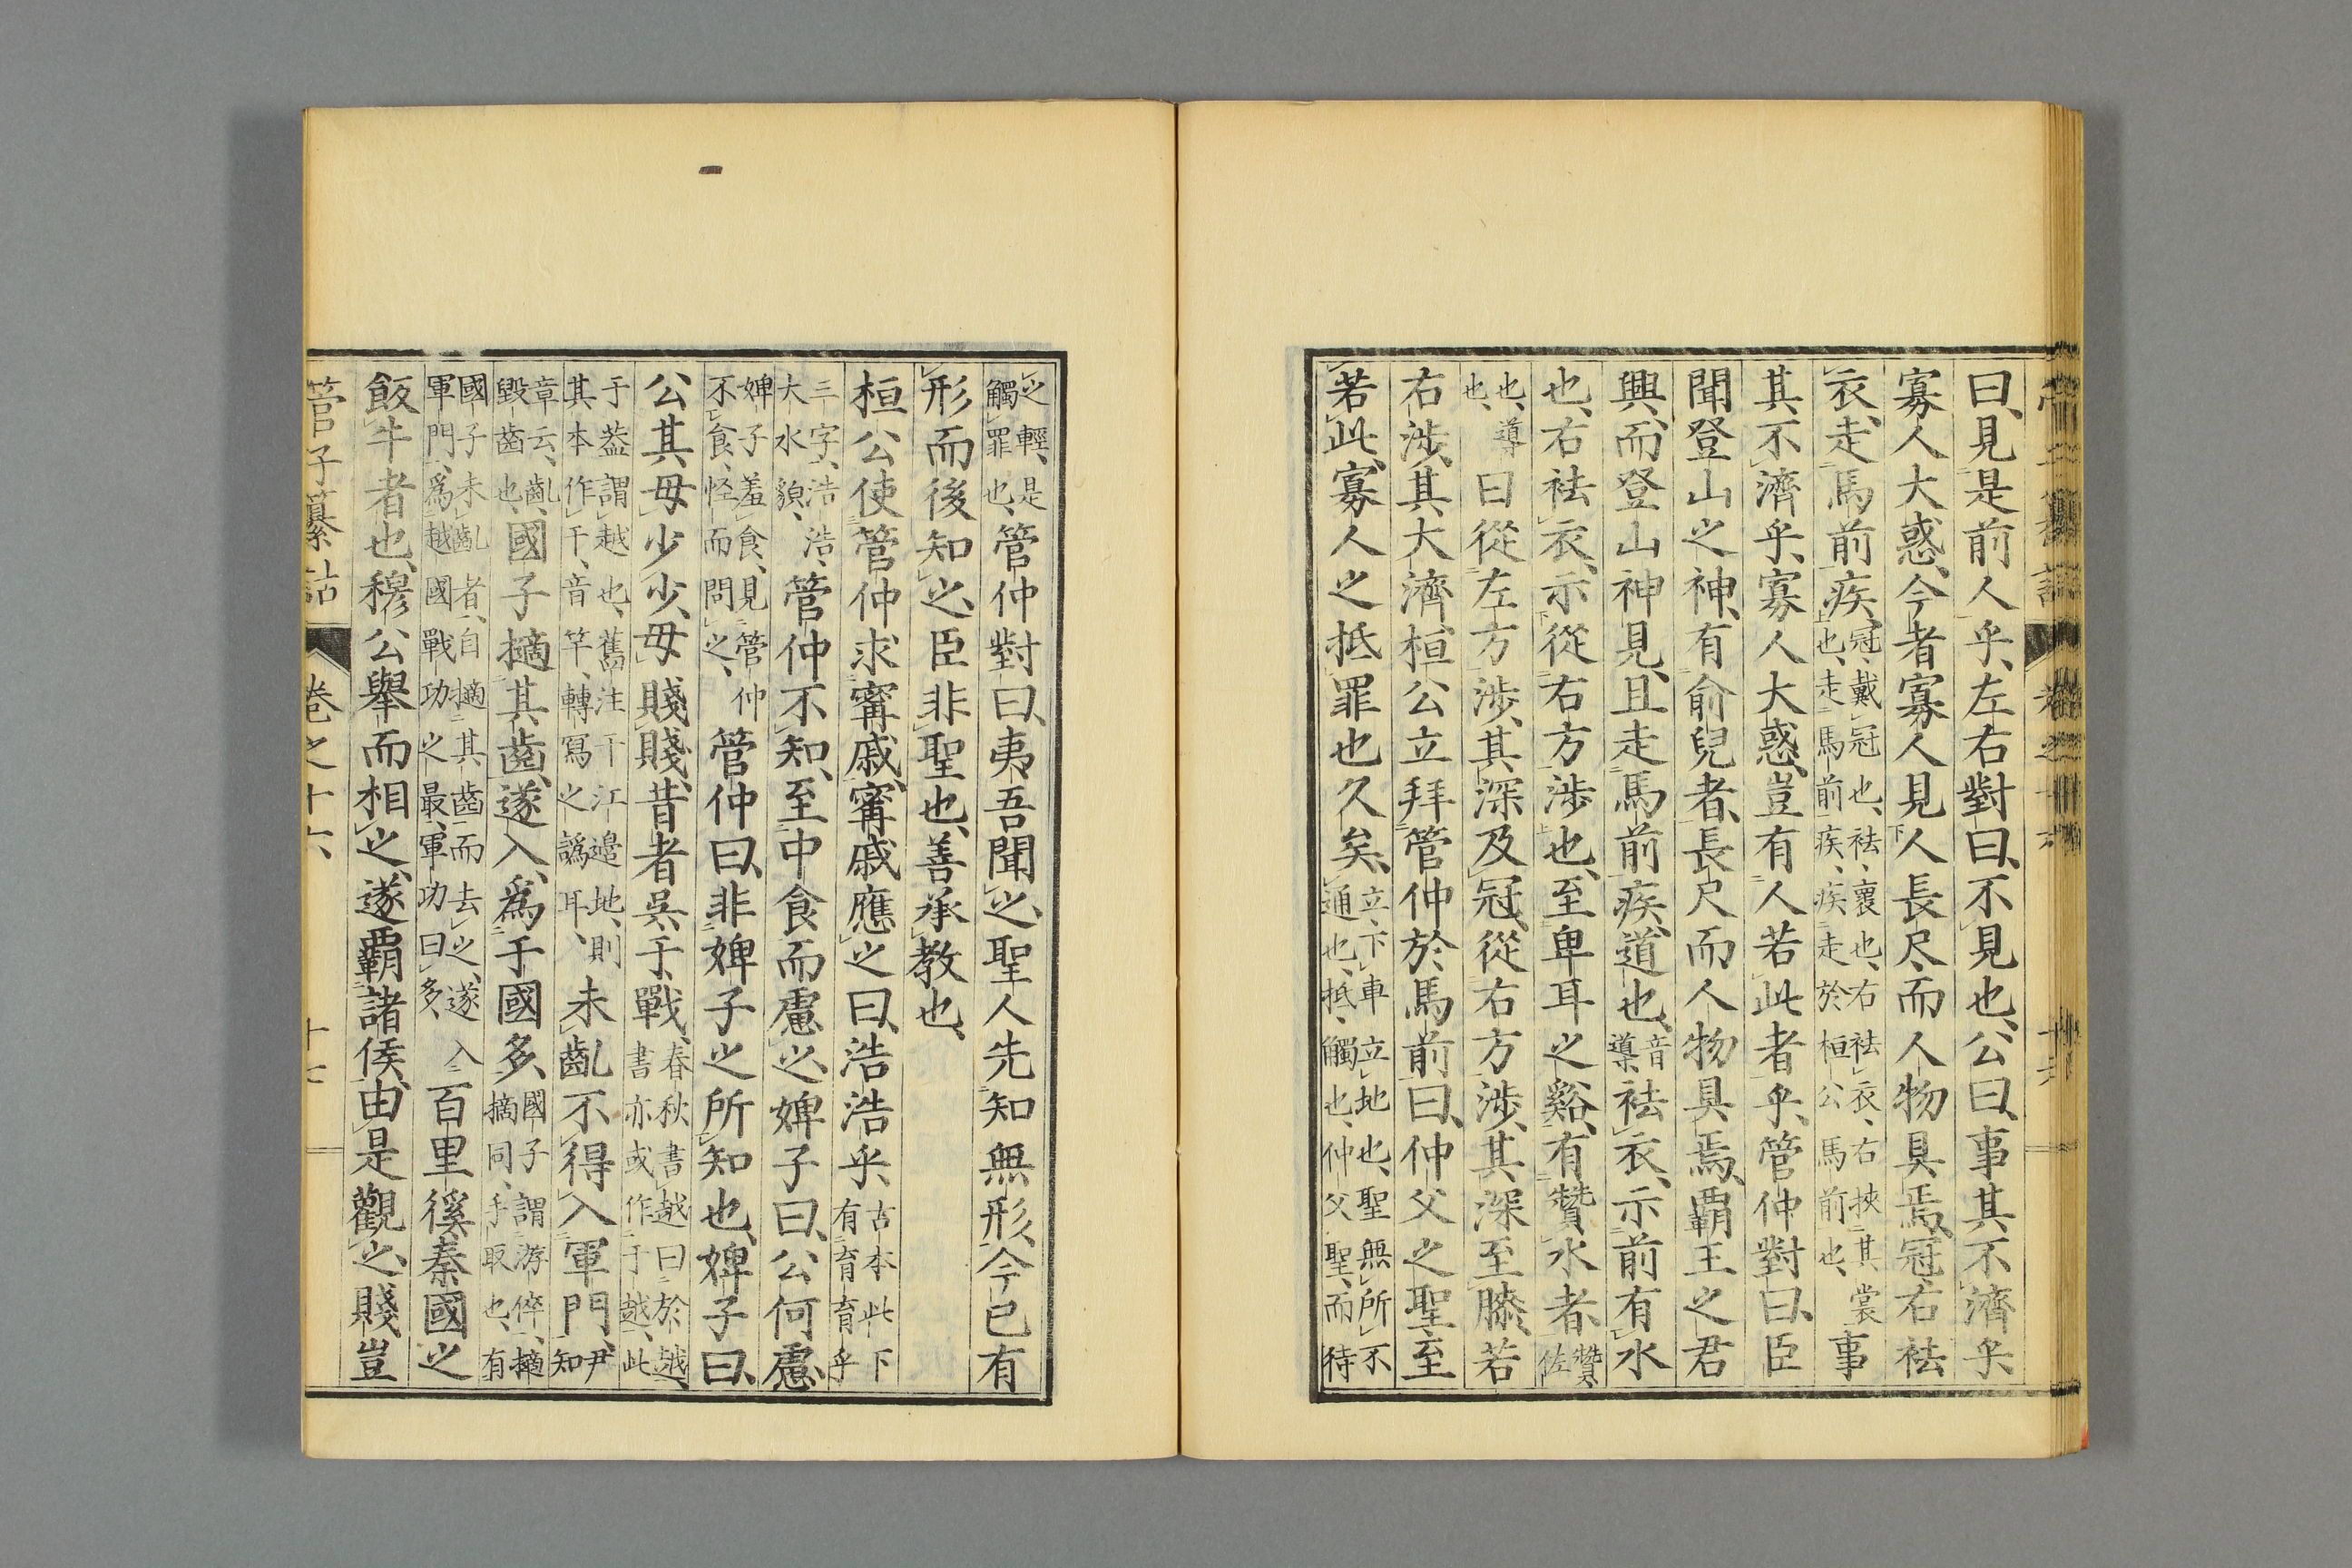 曰、見是前人乎、左右對曰、不見也、公曰、事其不濟乎
寡人大惑、今者寡人見人長尺而人物具焉、冠右袪
衣、走馬前疾、冠、戴冠也、袪、褰也、右袪衣、右挾其裳也、走馬前疾、疾走於桓公馬前也、事
其不濟乎、寡人大惑、豈有人若此者乎、管仲對曰、臣
聞登山之神、有俞兒者、長尺而人物具焉、霸王之君
興、而登山神見、且走馬前疾、道也、音導袪衣、示前有水
也、右袪衣、示從右方涉也、至卑耳之谿、有贊水者、贊、佐
也、導也、曰從左方涉、其深及冠、從右方涉、其深至膝、若
右涉、其大濟、桓公立拜管仲於馬前曰、仲父之聖至
若此、寡人之抵罪也久矣、立、下車立地也、聖無所不通也、抵、觸也、仲父聖、而待
之輕、是觸罪也、管仲對曰、夷吾聞之、聖人先知無形、今已有
形而後知之、臣非聖也、善承教也、
桓公使管仲求甯戚、甯戚應之曰、浩浩乎、古本此下有育育乎
三字、浩浩、大水貌、管仲不知、至中食而慮之、婢子曰、公何慮、
婢子羞食、見管仲不食、怪而問之、管仲曰、非婢子之所知也、婢子曰、
公其毋少少、毋賤賤、昔者吳于戰、春秋書越曰於越、書亦或作于越、此
于葢謂越也、舊注干江邊地、則其本作干、音竿、轉寫之譌耳、未齓不得入軍門、尹知
章云、齓、毀齒也、國子擿其齒、遂入、爲于國多、國子謂游倅、擿摘同、手取也、有
國子未齓者、自擿其齒而去之、遂入軍門、爲越國戰功之最、軍功曰多、百里徯秦國之
飯牛者也、穆公舉而相之、遂霸諸侯、由是觀之、賤豈
管子纂詁 卷之十六 十七